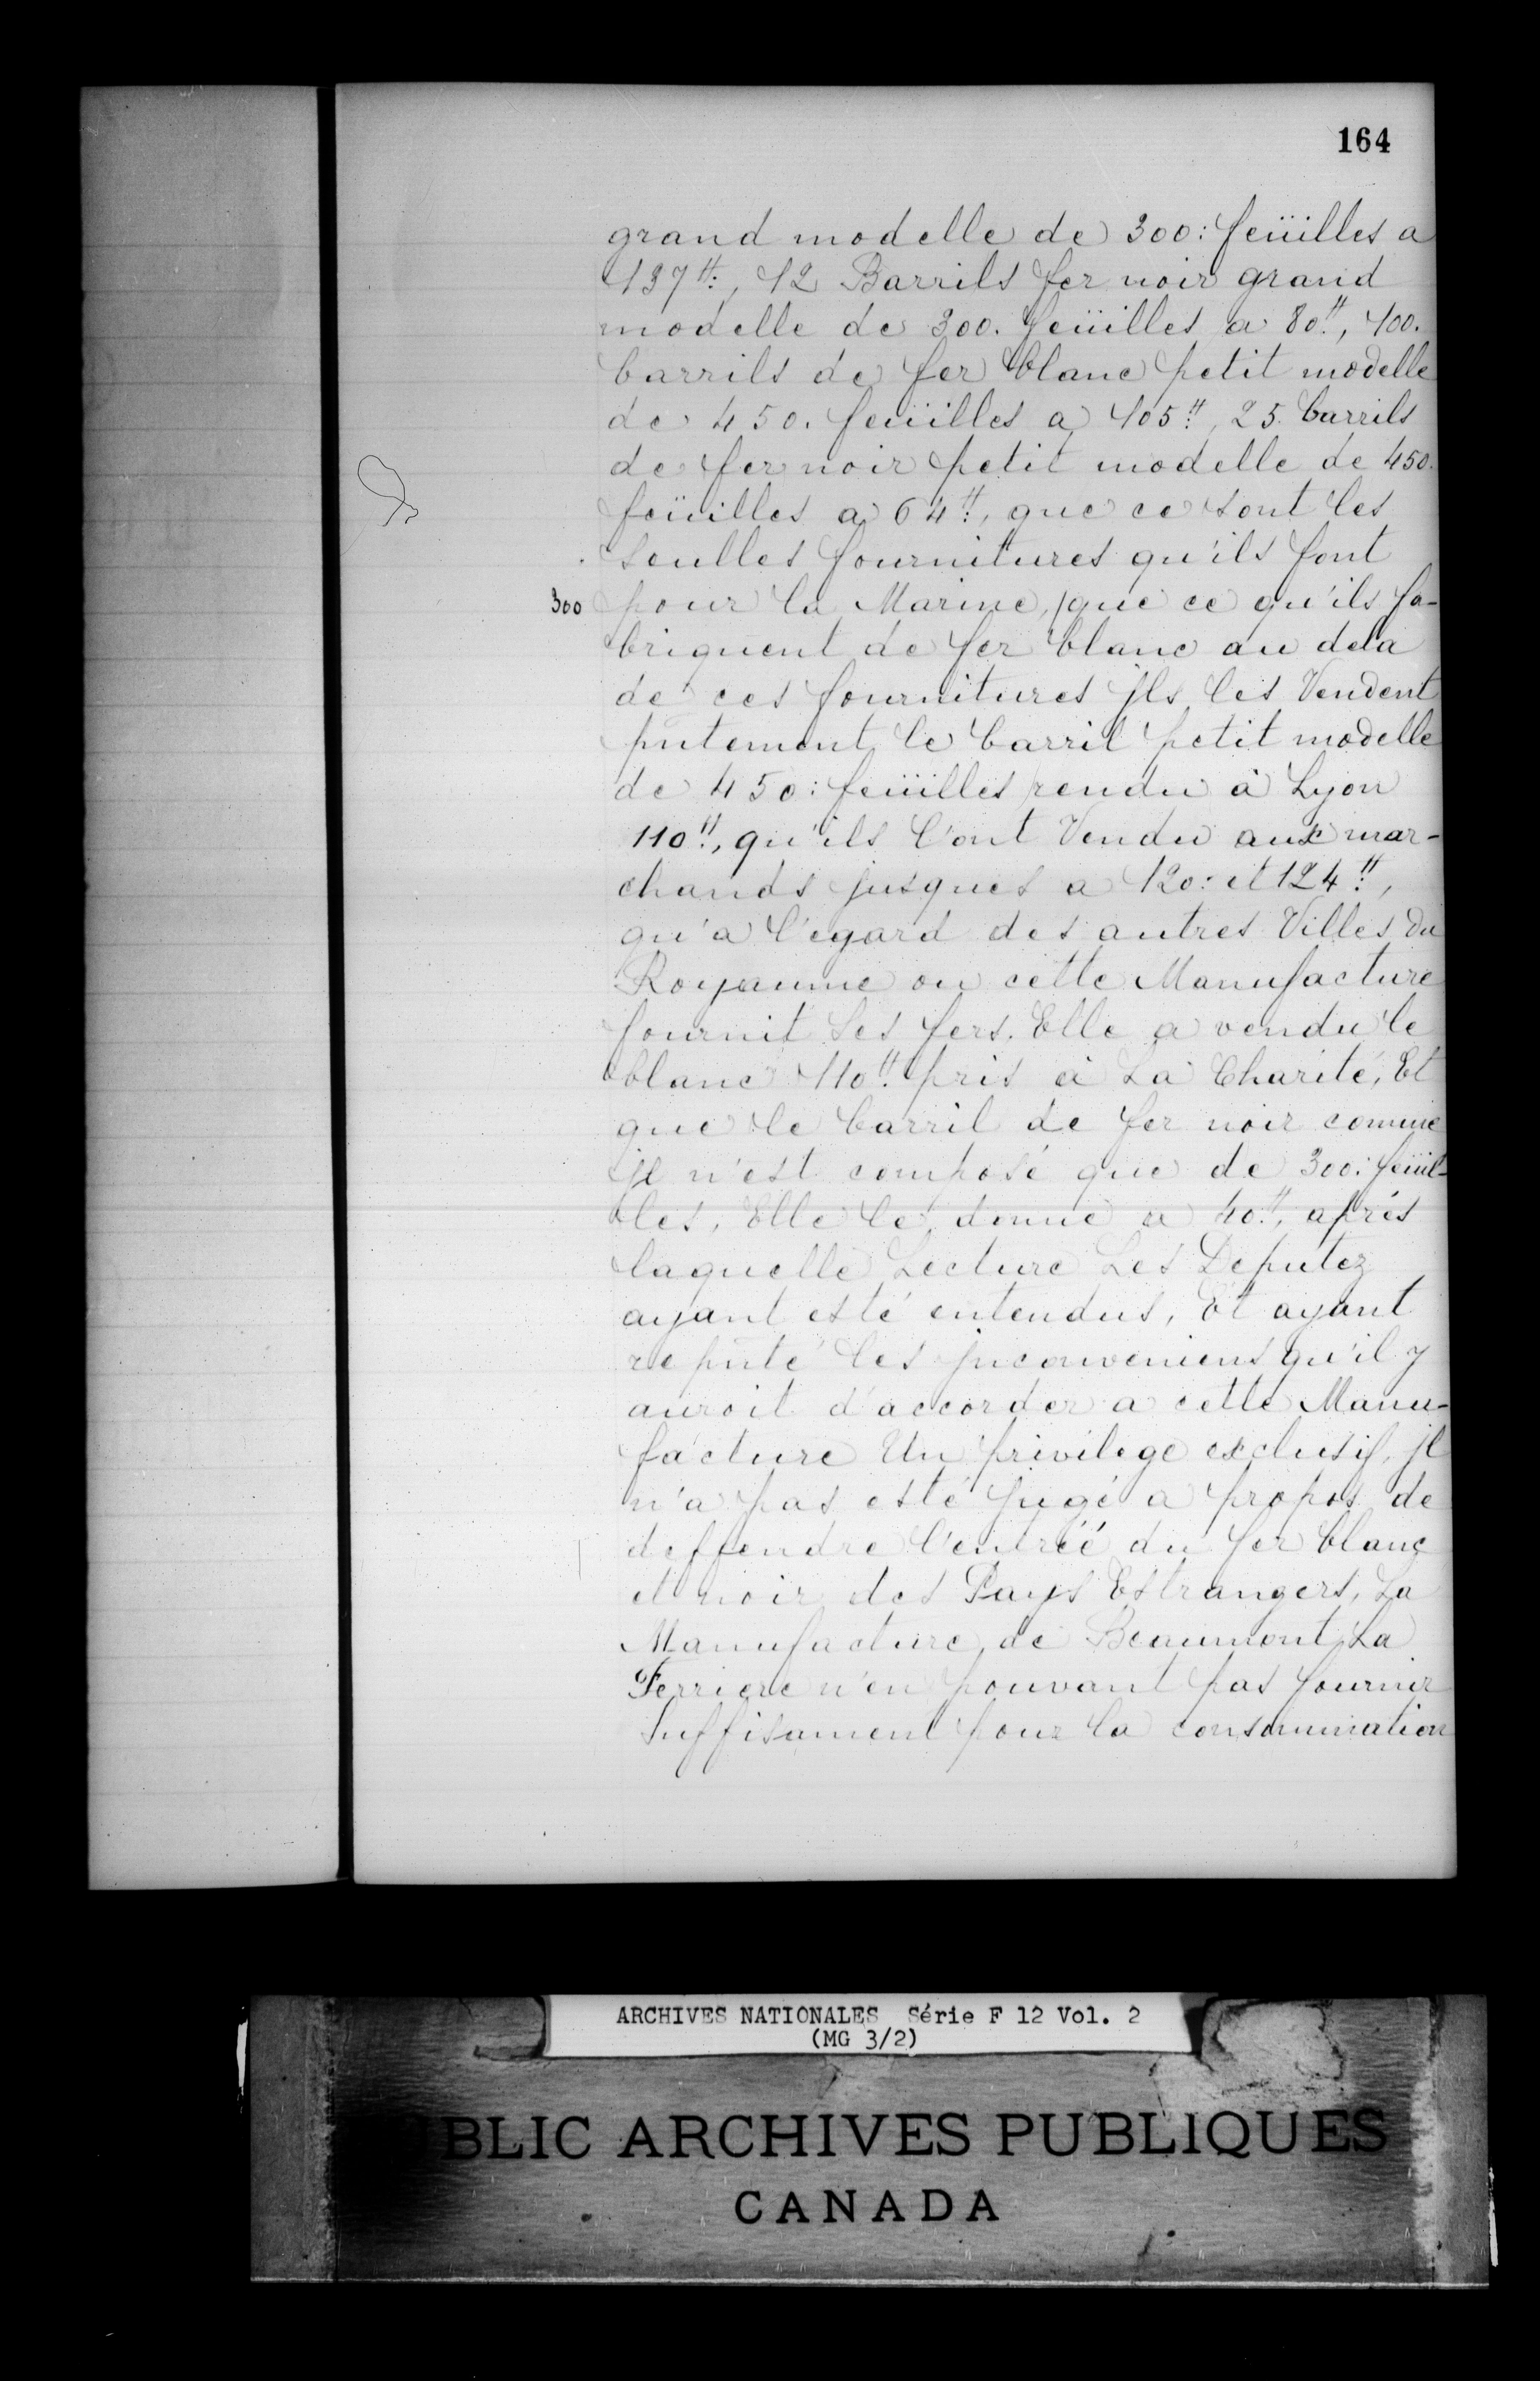 164
grand modelle de 300: feüilles a
137ᵗᵗ:, 12 Barrils fer noir grand
modelle de 300. feüilles a 80ᵗᵗ, 100.
barrils de fer blanc petit modelle
de 450. feüilles a 105ᵗᵗ, 25. barrils
de fer noir petit modelle de 450.
feüilles a 64ᵗᵗ, que ce sont les
seulles fournitures qu'ils font
300 pour la Marine, / que ce qu'ils fa-
briquent de fer blanc au dela
de ces fournitures jls les Vendent
pñtement le barril petit modelle
de 450: feüilles rendu à Lyon
110ᵗᵗ, qu'ils l'ont Vendu aux mar-
chands jusques a 120: et 124ᵗᵗ,
qu'a l'egard des autres Villes du
Royaume ou cette Manufacture
fournit Ses fers. Elle a vendu le
blanc 110ᵗᵗ pris à La Charité, Et
que le barril de fer noir comme
jl n'est composé que de 300: feüil-
les, Elle le donne a 40ᵗᵗ, aprés
laquelle Lecture Les Deputez
ayant esté entendus, Et ayant
repñté les jnconveniens qu'il y
auroit d'accorder a cette Manu-
facture Un privilege exclusif, jl
n'a pas esté jugé a propos de
deffendre l'entréé du fer blanc
et noir des Pays Estrangers, La
Manufacture de Beaumont La
Ferriere n'en pouvant pas fournir
Suffisament pour la consommation
ARCHIVES NATIONALES Série F 12 Vol. 2
(MG 3/2)
BLIC ARCHIVES PUBLIQUES
CANADA